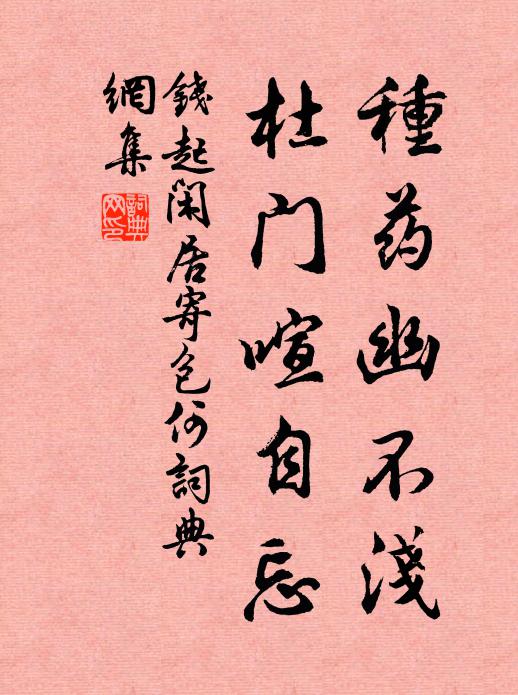 種药幽不淺
杜门喧自忘
錢起闲居寄包何詞典
網集
詞典
网印